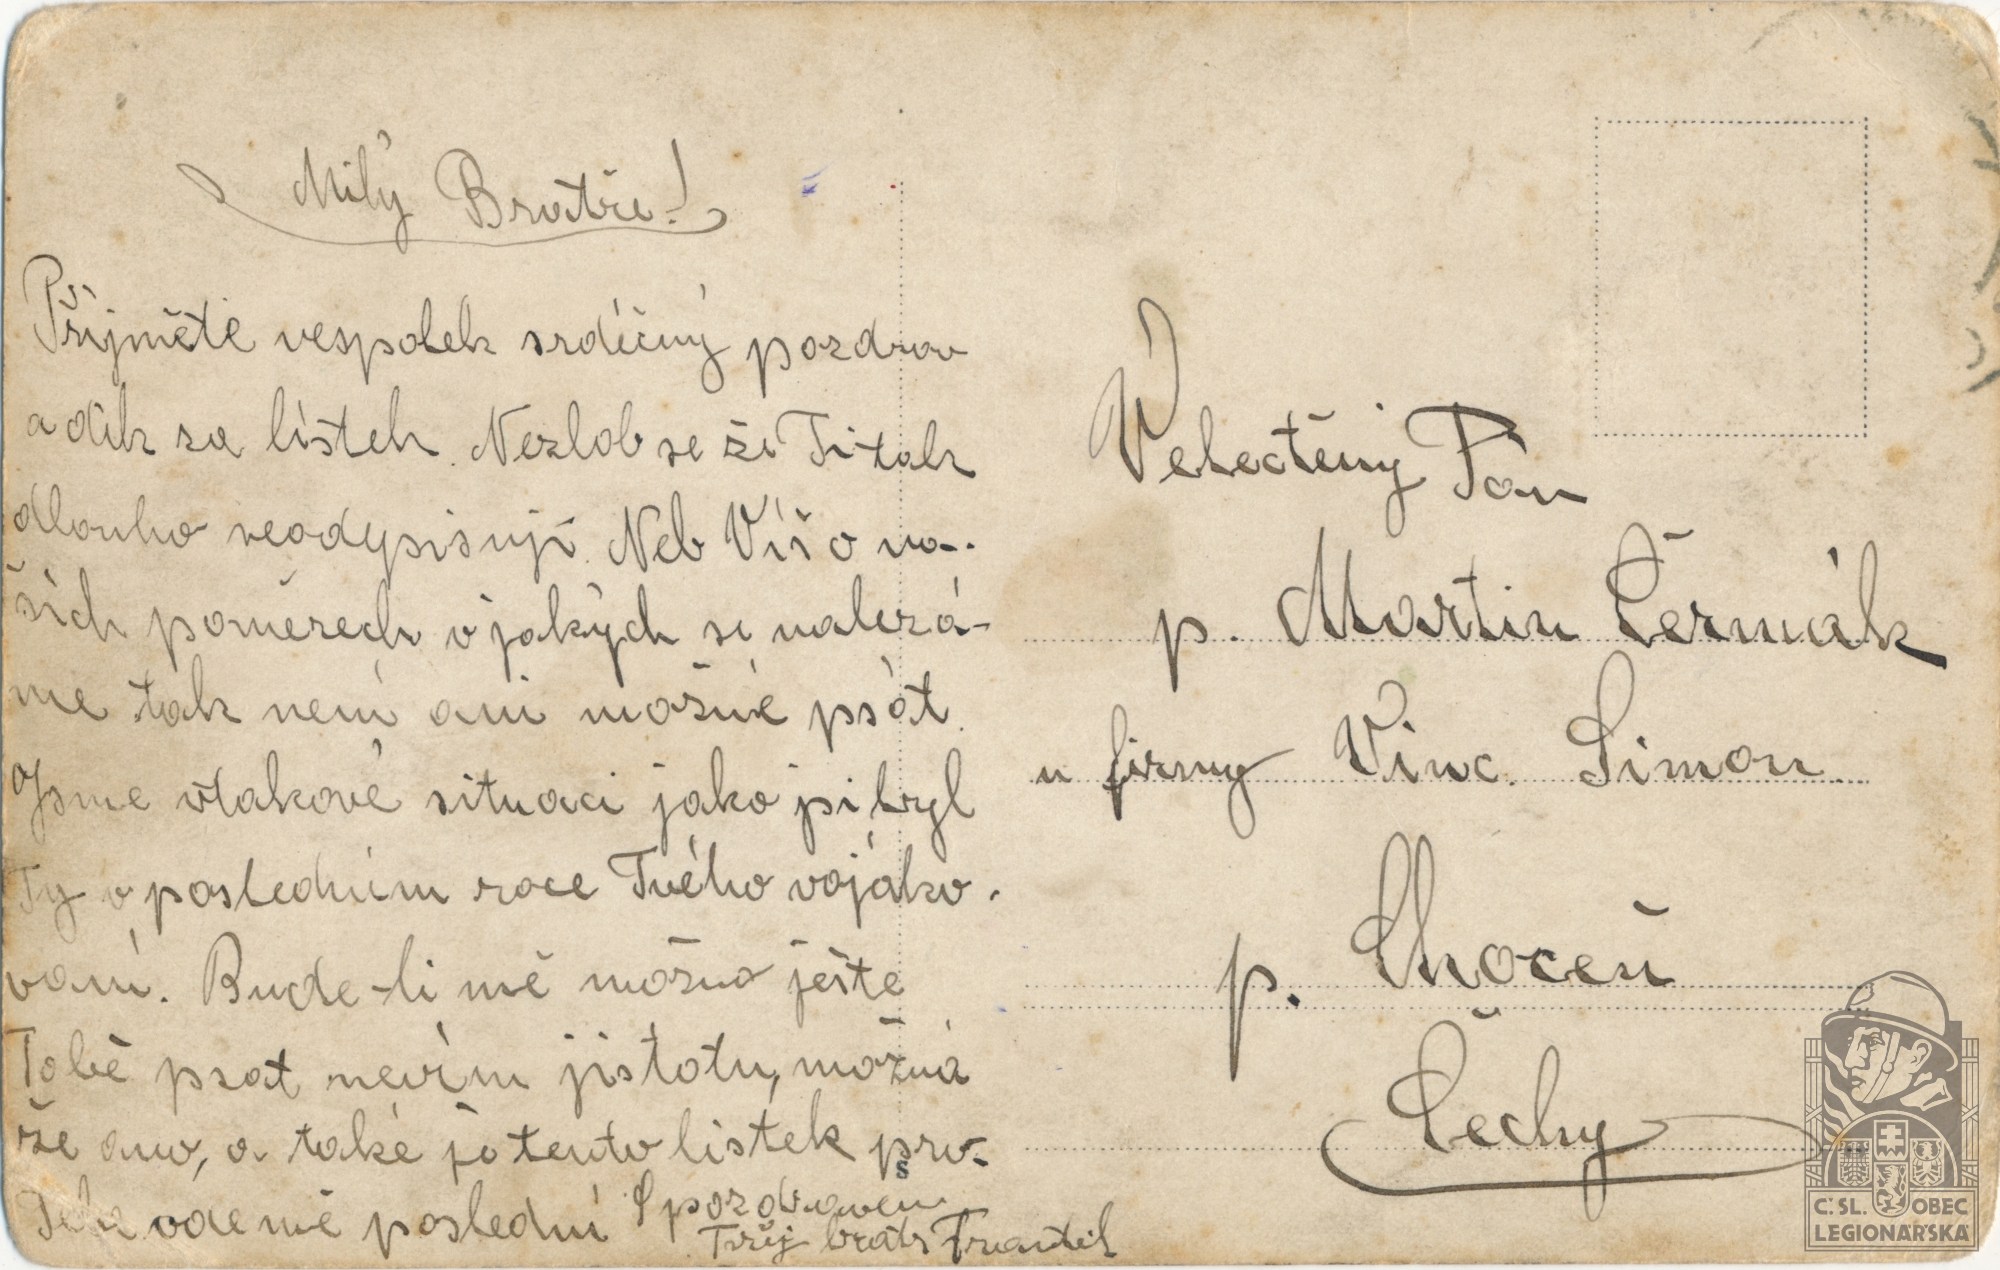 Milý Bratře!
Příjměte vespolek srdéčný pozdrav
a dík za lístek. Nezlob se že Ti tak
dlouho neodypisuji. Neb Víš o na-
šich poměrech v jakých se nalezá-
me tak není ani možné psát.
Jsme vtakové situaci jako jsi byl
Ty v posledním roce Tvého vojáko-
vaní. Bude-li mě možno ješte
Tobě psat nevím jistotu, možná
že ano, a také je tento listek pro
Tebe ode mě poslední S pozdravem
Tvůj bratr František
Velectěný Pan
p. Martin Čermák
u firmy Vinc. Simon
p. Choceň
Čechy
Č.SL. OBEC
LEGIONÁŘSKÁ